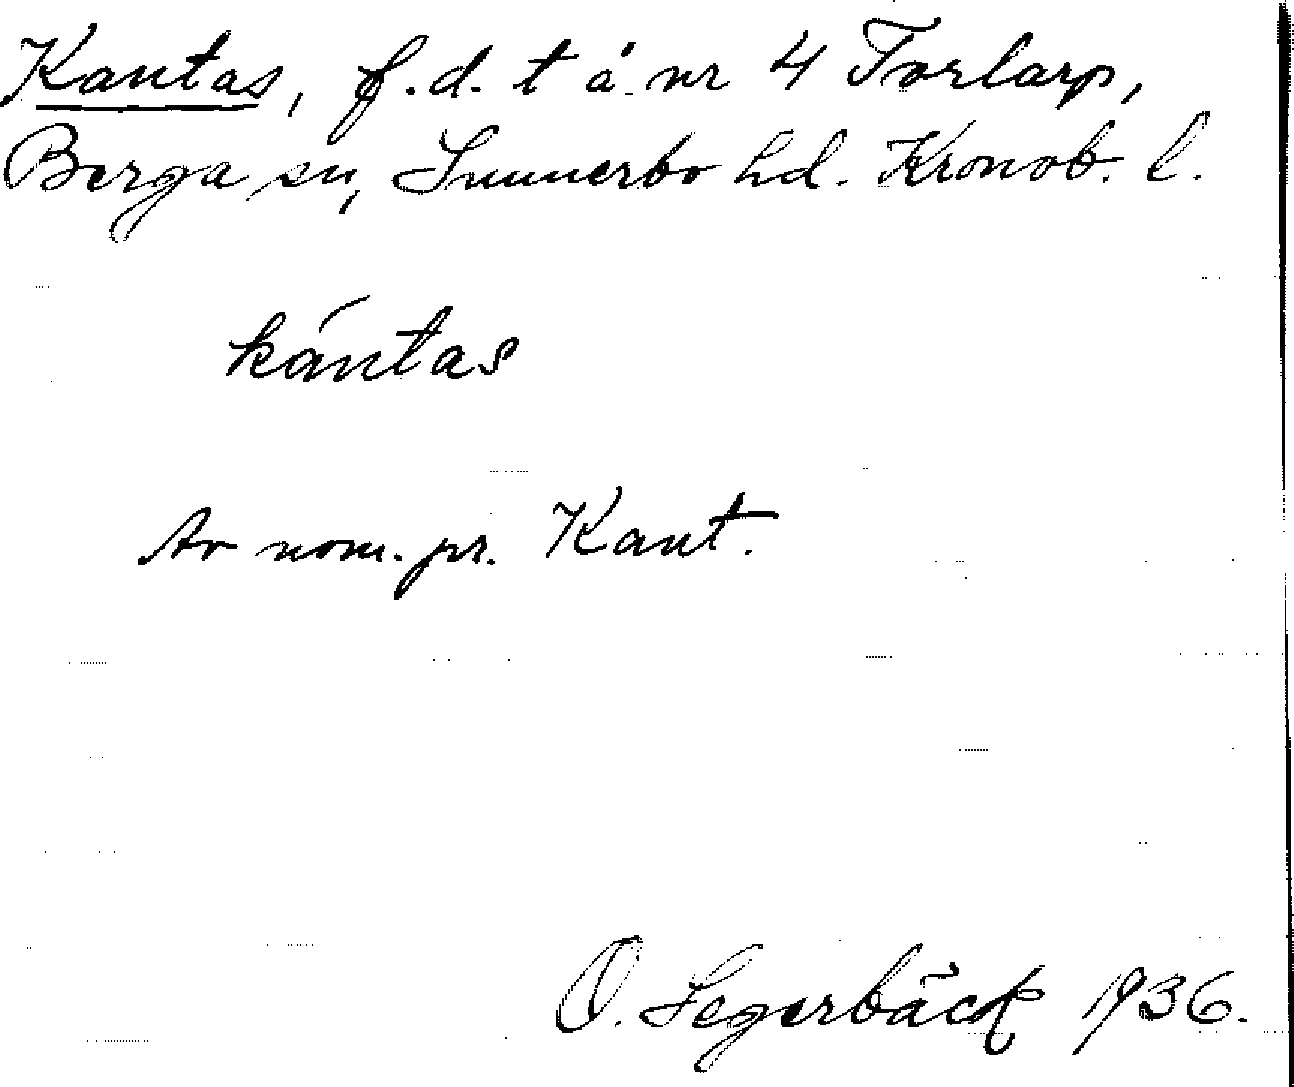 Kantas, f.d. t å nr 4 Torlarp,
Berga sn, Sunnerbo hd. Kronob. l.
kántas
Av nom. pr. Kant.
O. Segerbäck 1936.